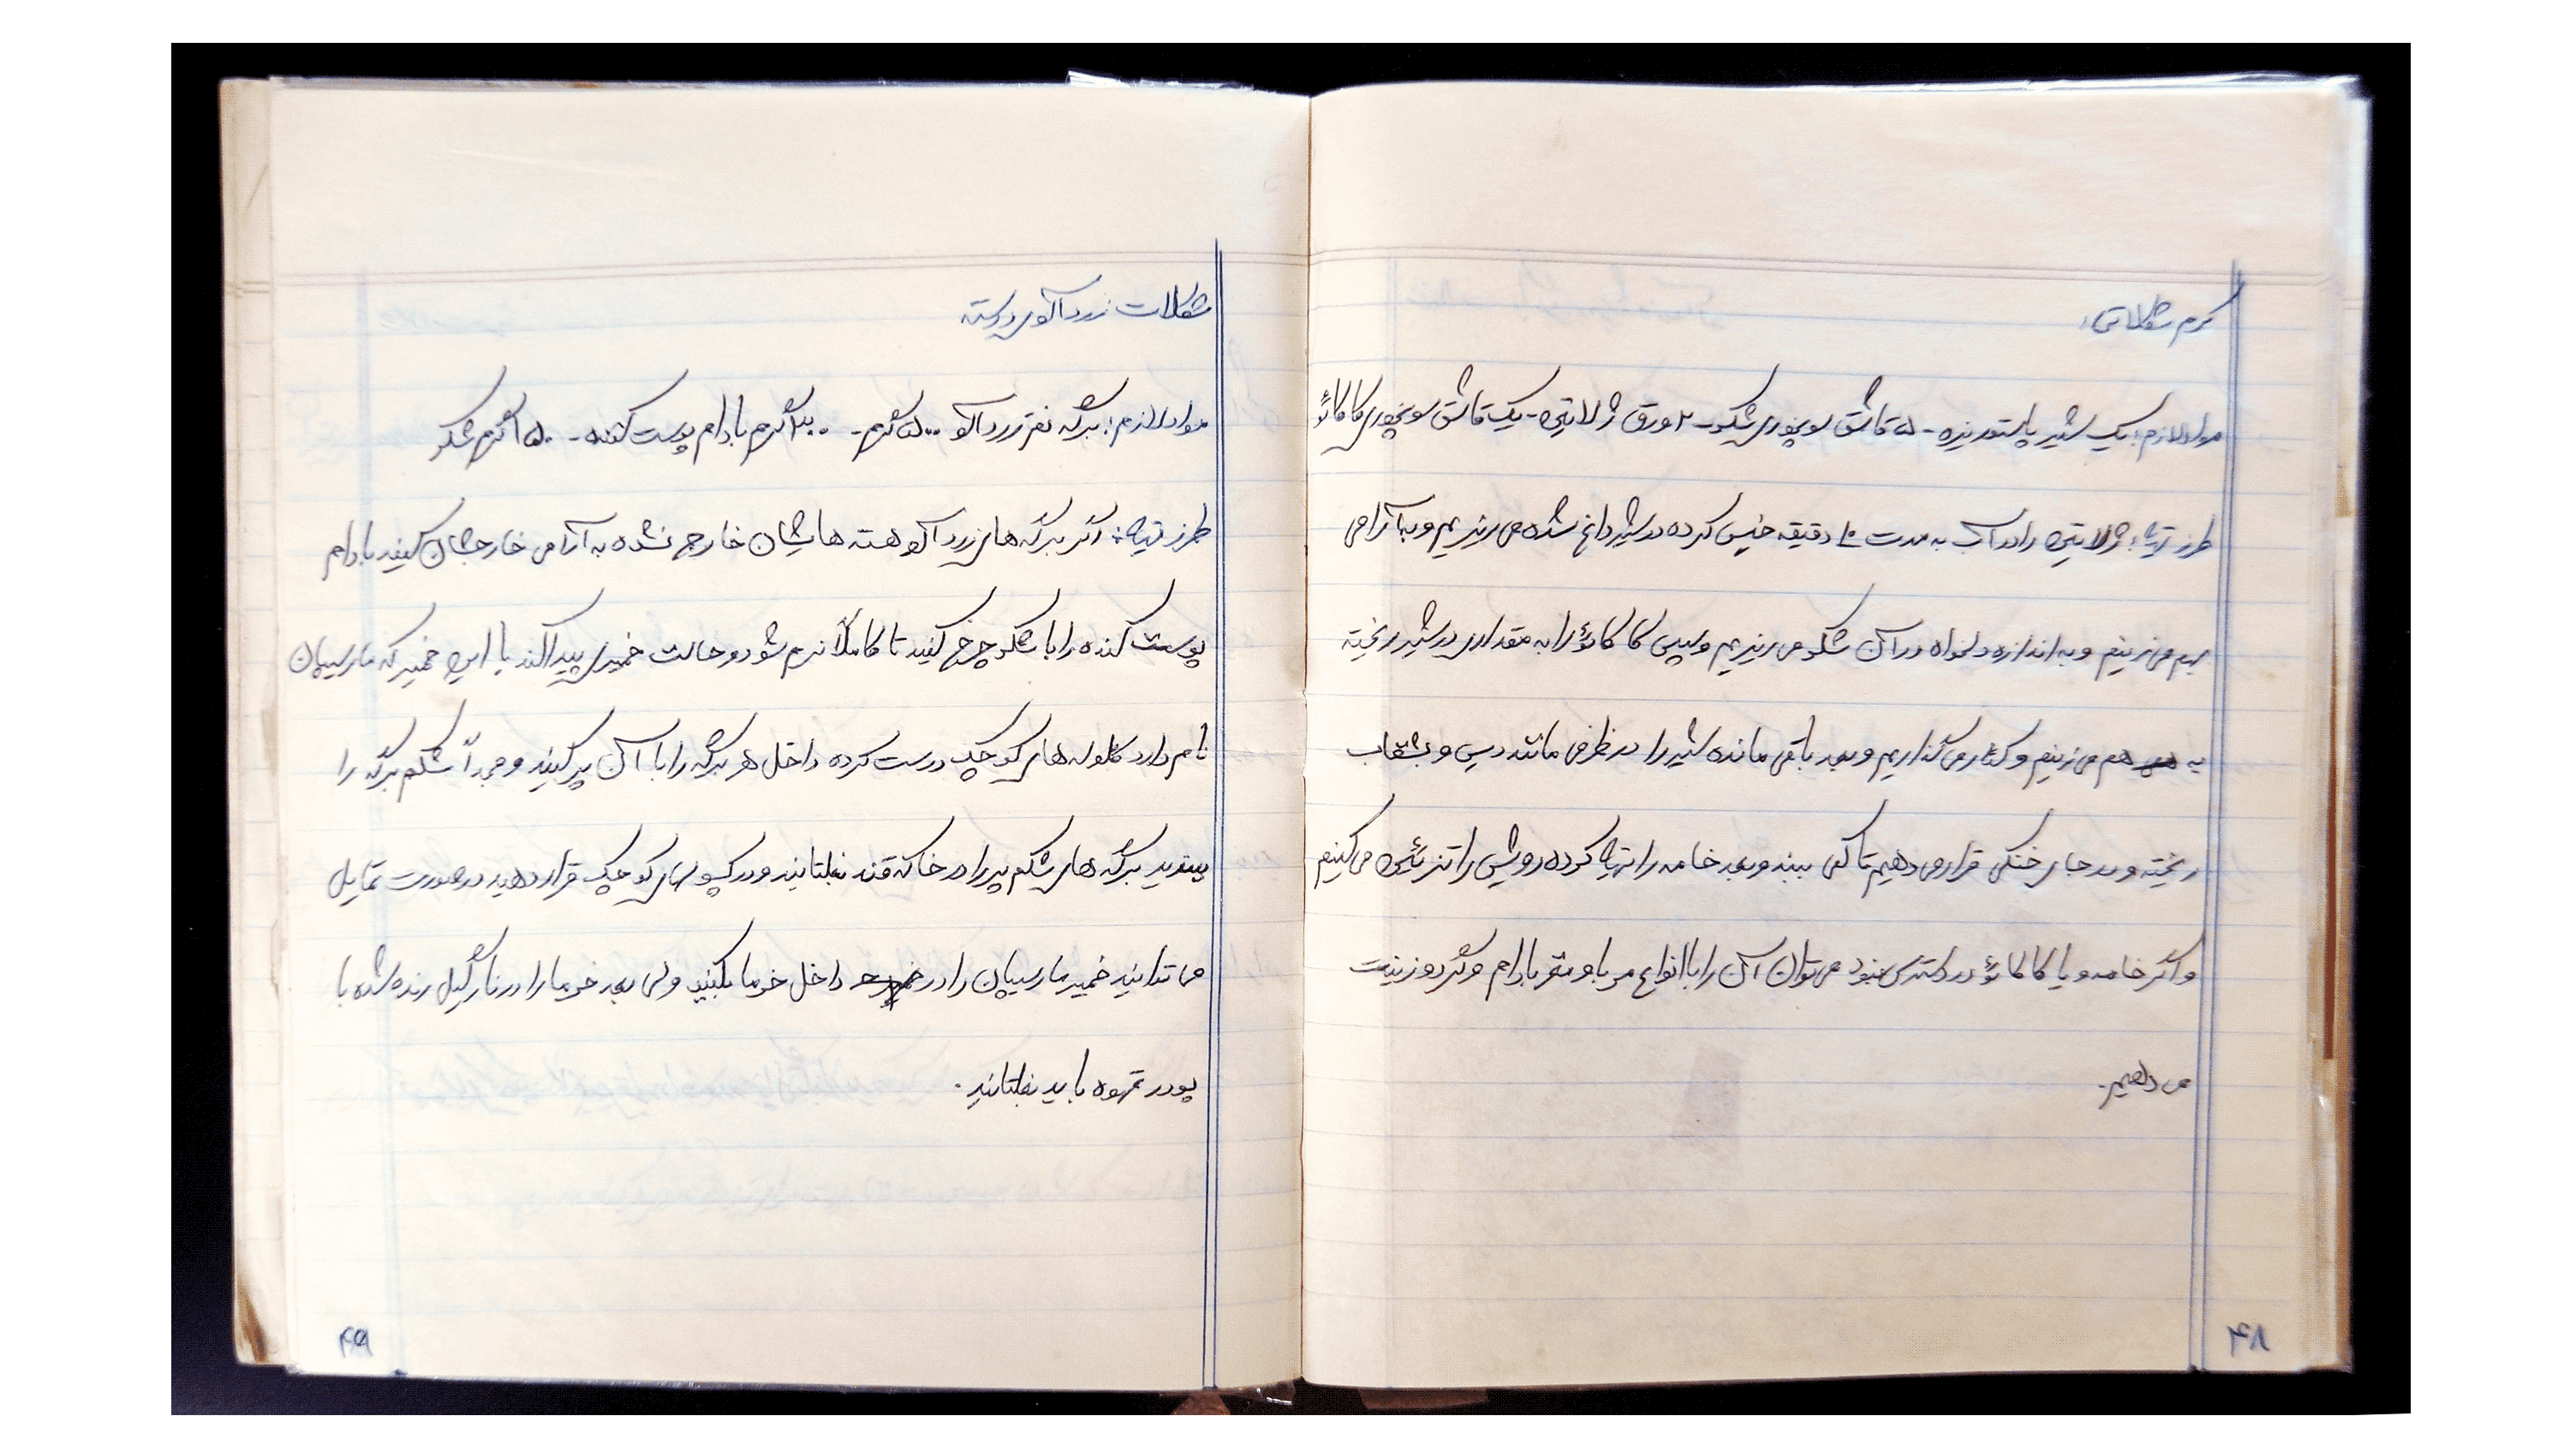 کرم شکلاتی:
مواد لازم: یک شیر پاستوریزه - ۵ قاشق سوپخوری شکر - ۲ ورق ژلاتین - یک قاشق سوپخوری کاکائو
طرز تهیه: ژلاتین را در آب به مدت ۱۰ دقیقه خیس کرده در شیر داغ شده می ریزیم و به آرامی
بهم می زنیم و به اندازه دلخواه در آن شکر می ریزیم و سپس کاکائو را به مقداری در شیر ریخته
به هم می زنیم و کنار می گذاریم و بعد باقی مانده شیر را در ظرفی مانند دیس و بشقاب
ریخته و در جای خنکی قرار می دهیم تا کمی ببندد و بعد خامه را تهیه کرده رویش را تزئین می کنیم
و اگر خامه و یا کاکائو در دسترس نبود می توان آن را با انواع مربا و مغز بادام و گردو زینت
می دهیم.
۴۸
شکلات زردآلوی درسته
مواد لازم: برگه نفتر زردآلو ۵۰۰ گرم - ۲۰۰ گرم بادام پوست کنده - ۱۵۰ گرم شکر
طرز تهیه: اگر برگه های زردآلو هسته هایشان خارج نشده به آرامی خارجشان کنید بادام
پوست کنده را با شکر چرخ کنید تا کاملاً نرم شود و حالت خمیری پیدا کند با این خمیر که مارسیپان
نام دارد گلوله های کوچک درست کرده داخل هر برگه را با آن پر کنید و مجدداً شکم برگه را
ببندید برگه های شکم پر را در خاکه قند بغلتانید و در کپسولهای کوچک قرار دهید در صورت تمایل
می توانید خمیر مارسیپان را در داخل خرما بکنید ولی بعد خرما را در نارگیل رنده شده با
پودر قهوه باید بغلتانید.
۴۹